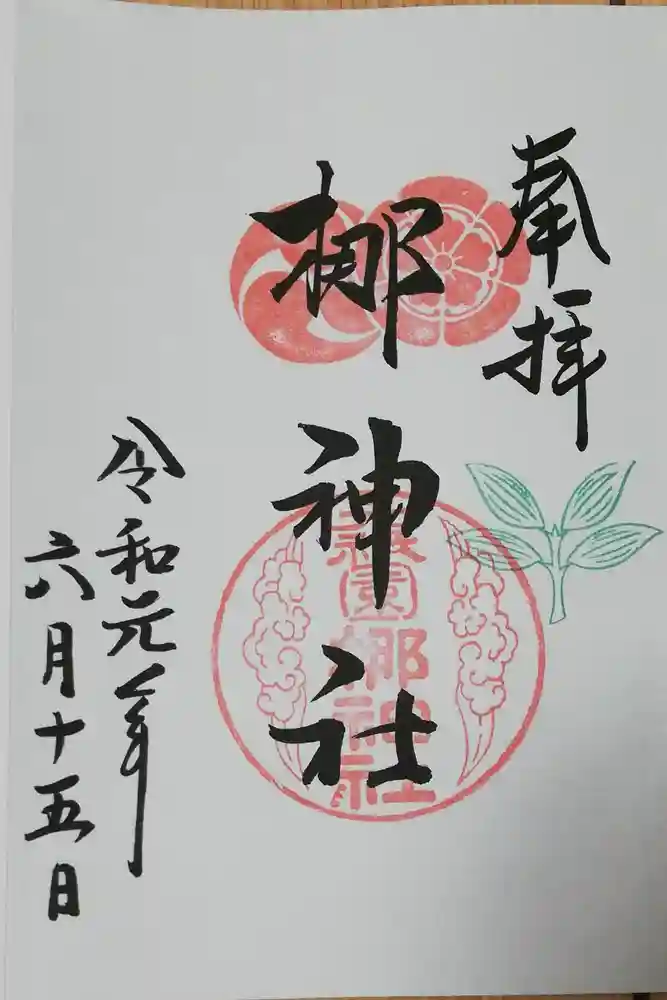 奉拝
梛神社
祇園梛神社
令和元年
六月十五日